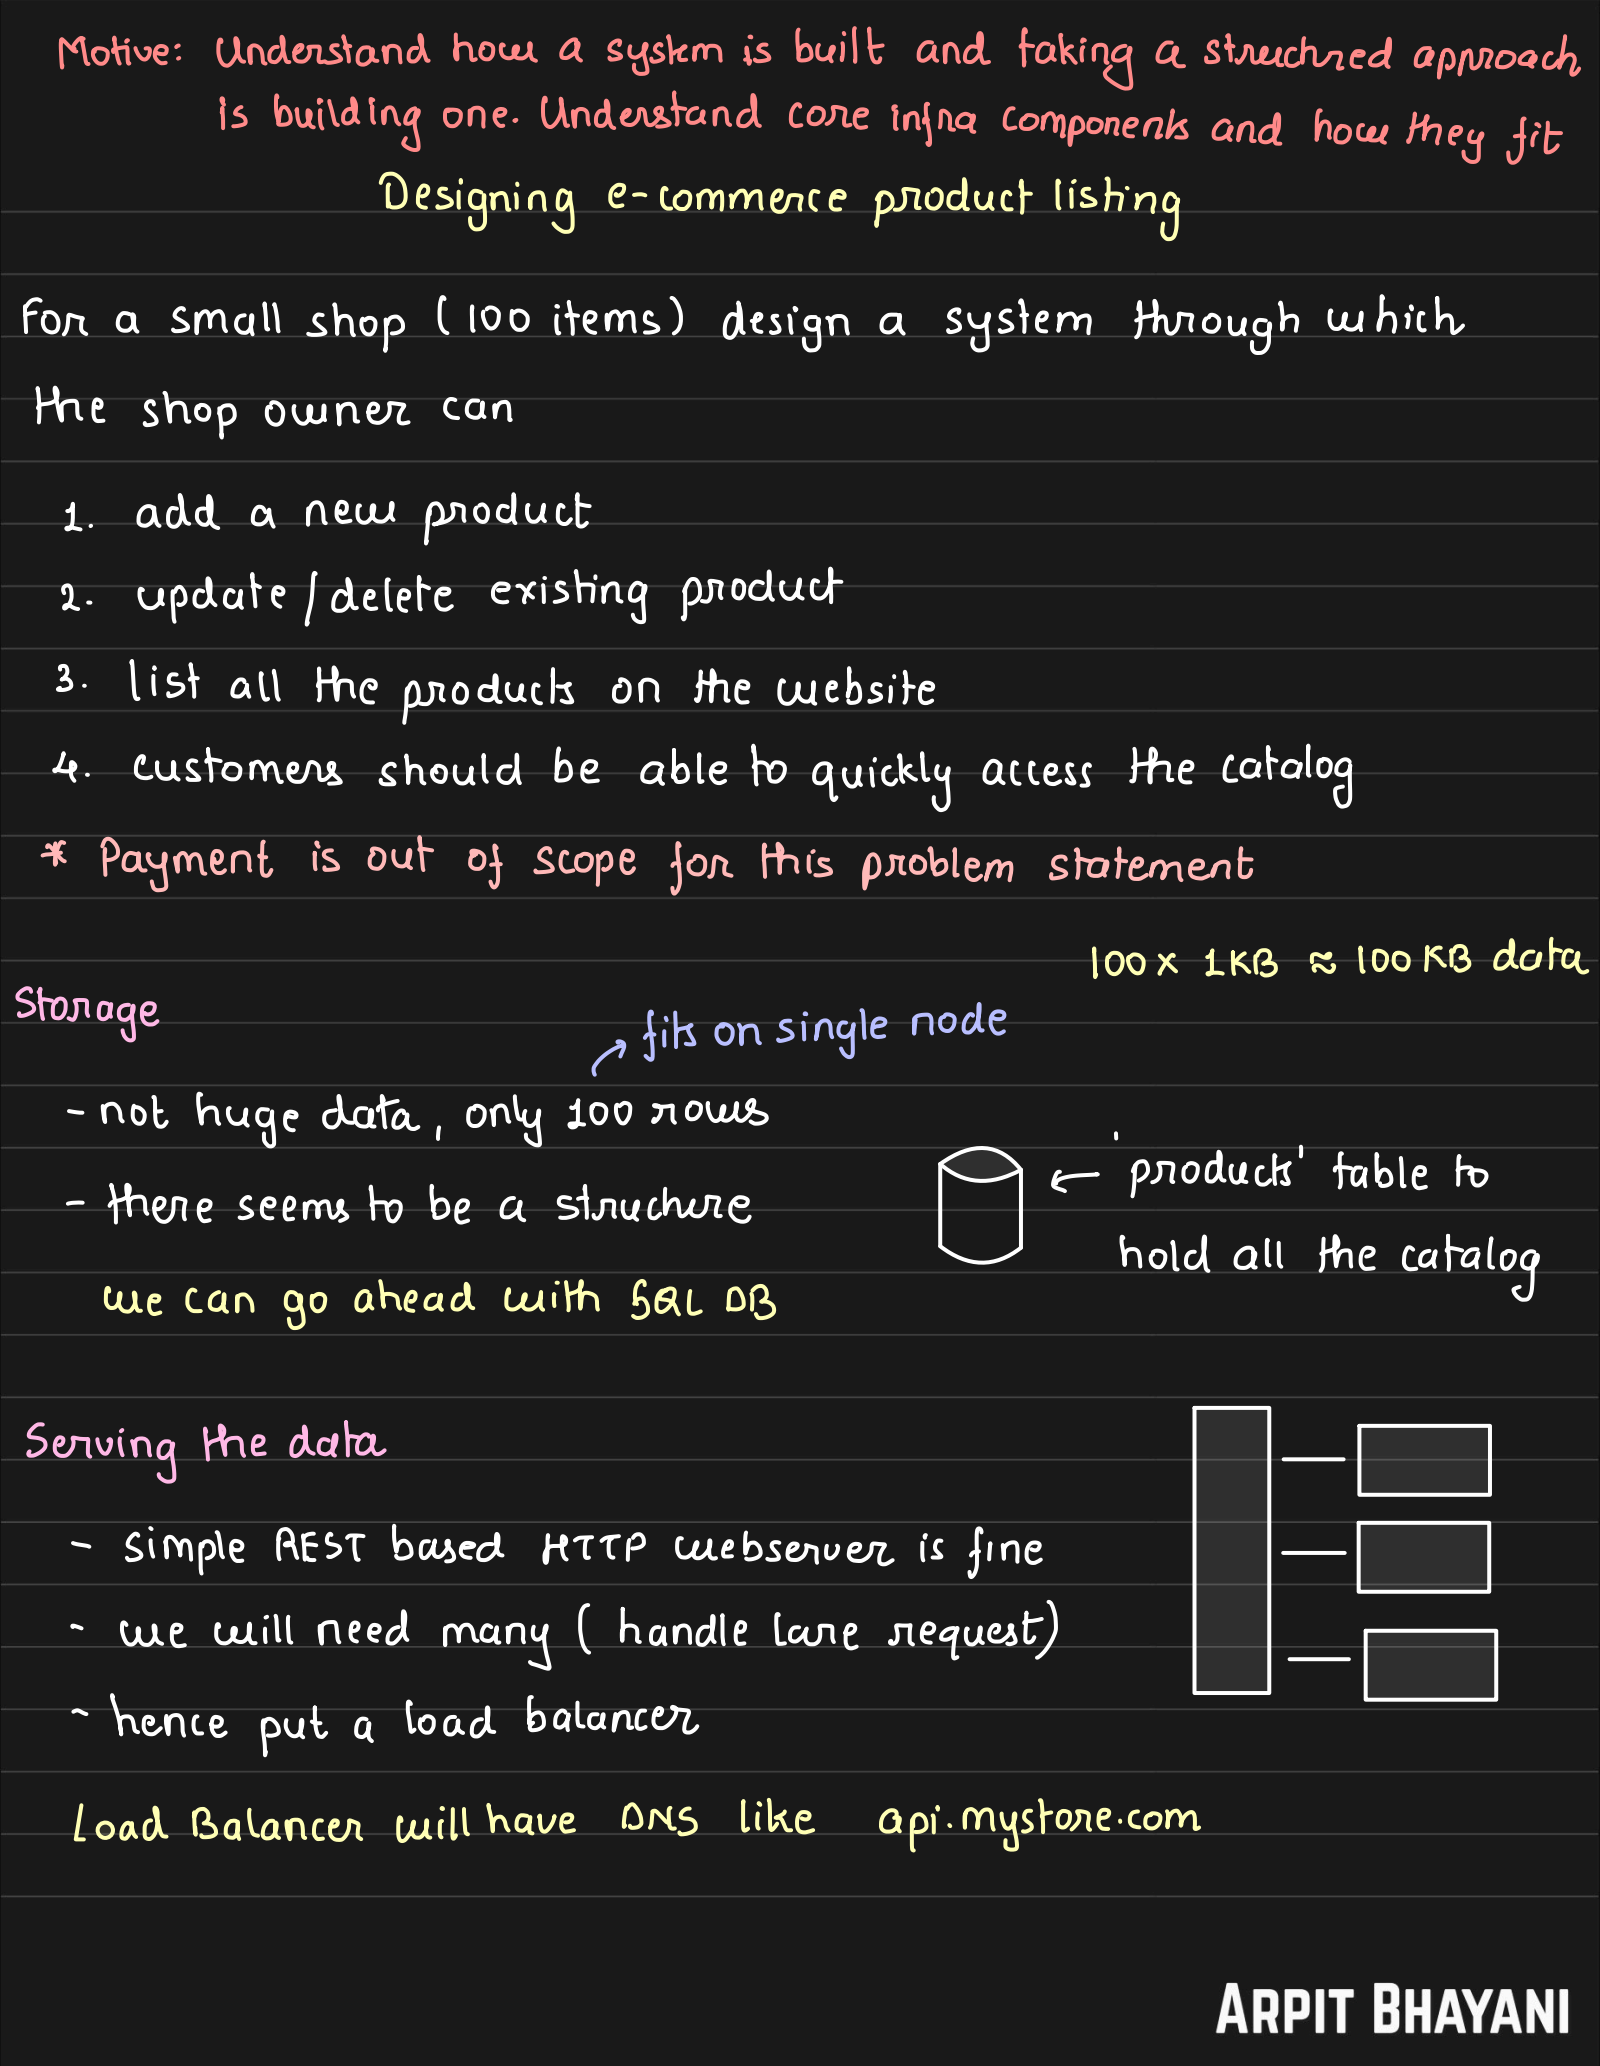 Motive: Understand how a system is built and taking a structured approach
is building one. Understand core infra components and how they fit
Designing e-commerce product listing
For a small shop (100 items) design a system through which
the shop owner can
1. add a new product
2. update/delete existing product
3. list all the products on the website
4. customers should be able to quickly access the catalog
* Payment is out of scope for this problem statement
100 x 1KB ≈ 100 KB data
Storage
fits on single node
- not huge data, only 100 rows
- there seems to be a structure
'products' table to
hold all the catalog
we can go ahead with SQL DB
Serving the data
- simple REST based HTTP webserver is fine
- we will need many (handle lare request)
- hence put a load balancer
Load Balancer will have DNS like api.mystore.com
ARPIT BHAYANI